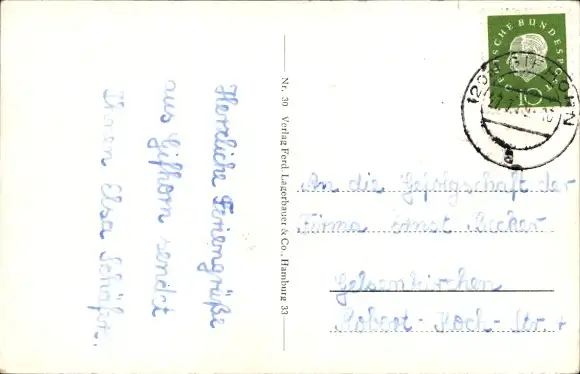 Herzliche Feriengrüße
aus Gifhorn sendet
Ihnen Elsa Schäfer.
Nr. 30 Verlag Ferd. Lagerbauer & Co., Hamburg 33
10
An die Gefolgschaft der
Firma Ernst Becher
Gelsenkirchen
Robert-Koch-Str.